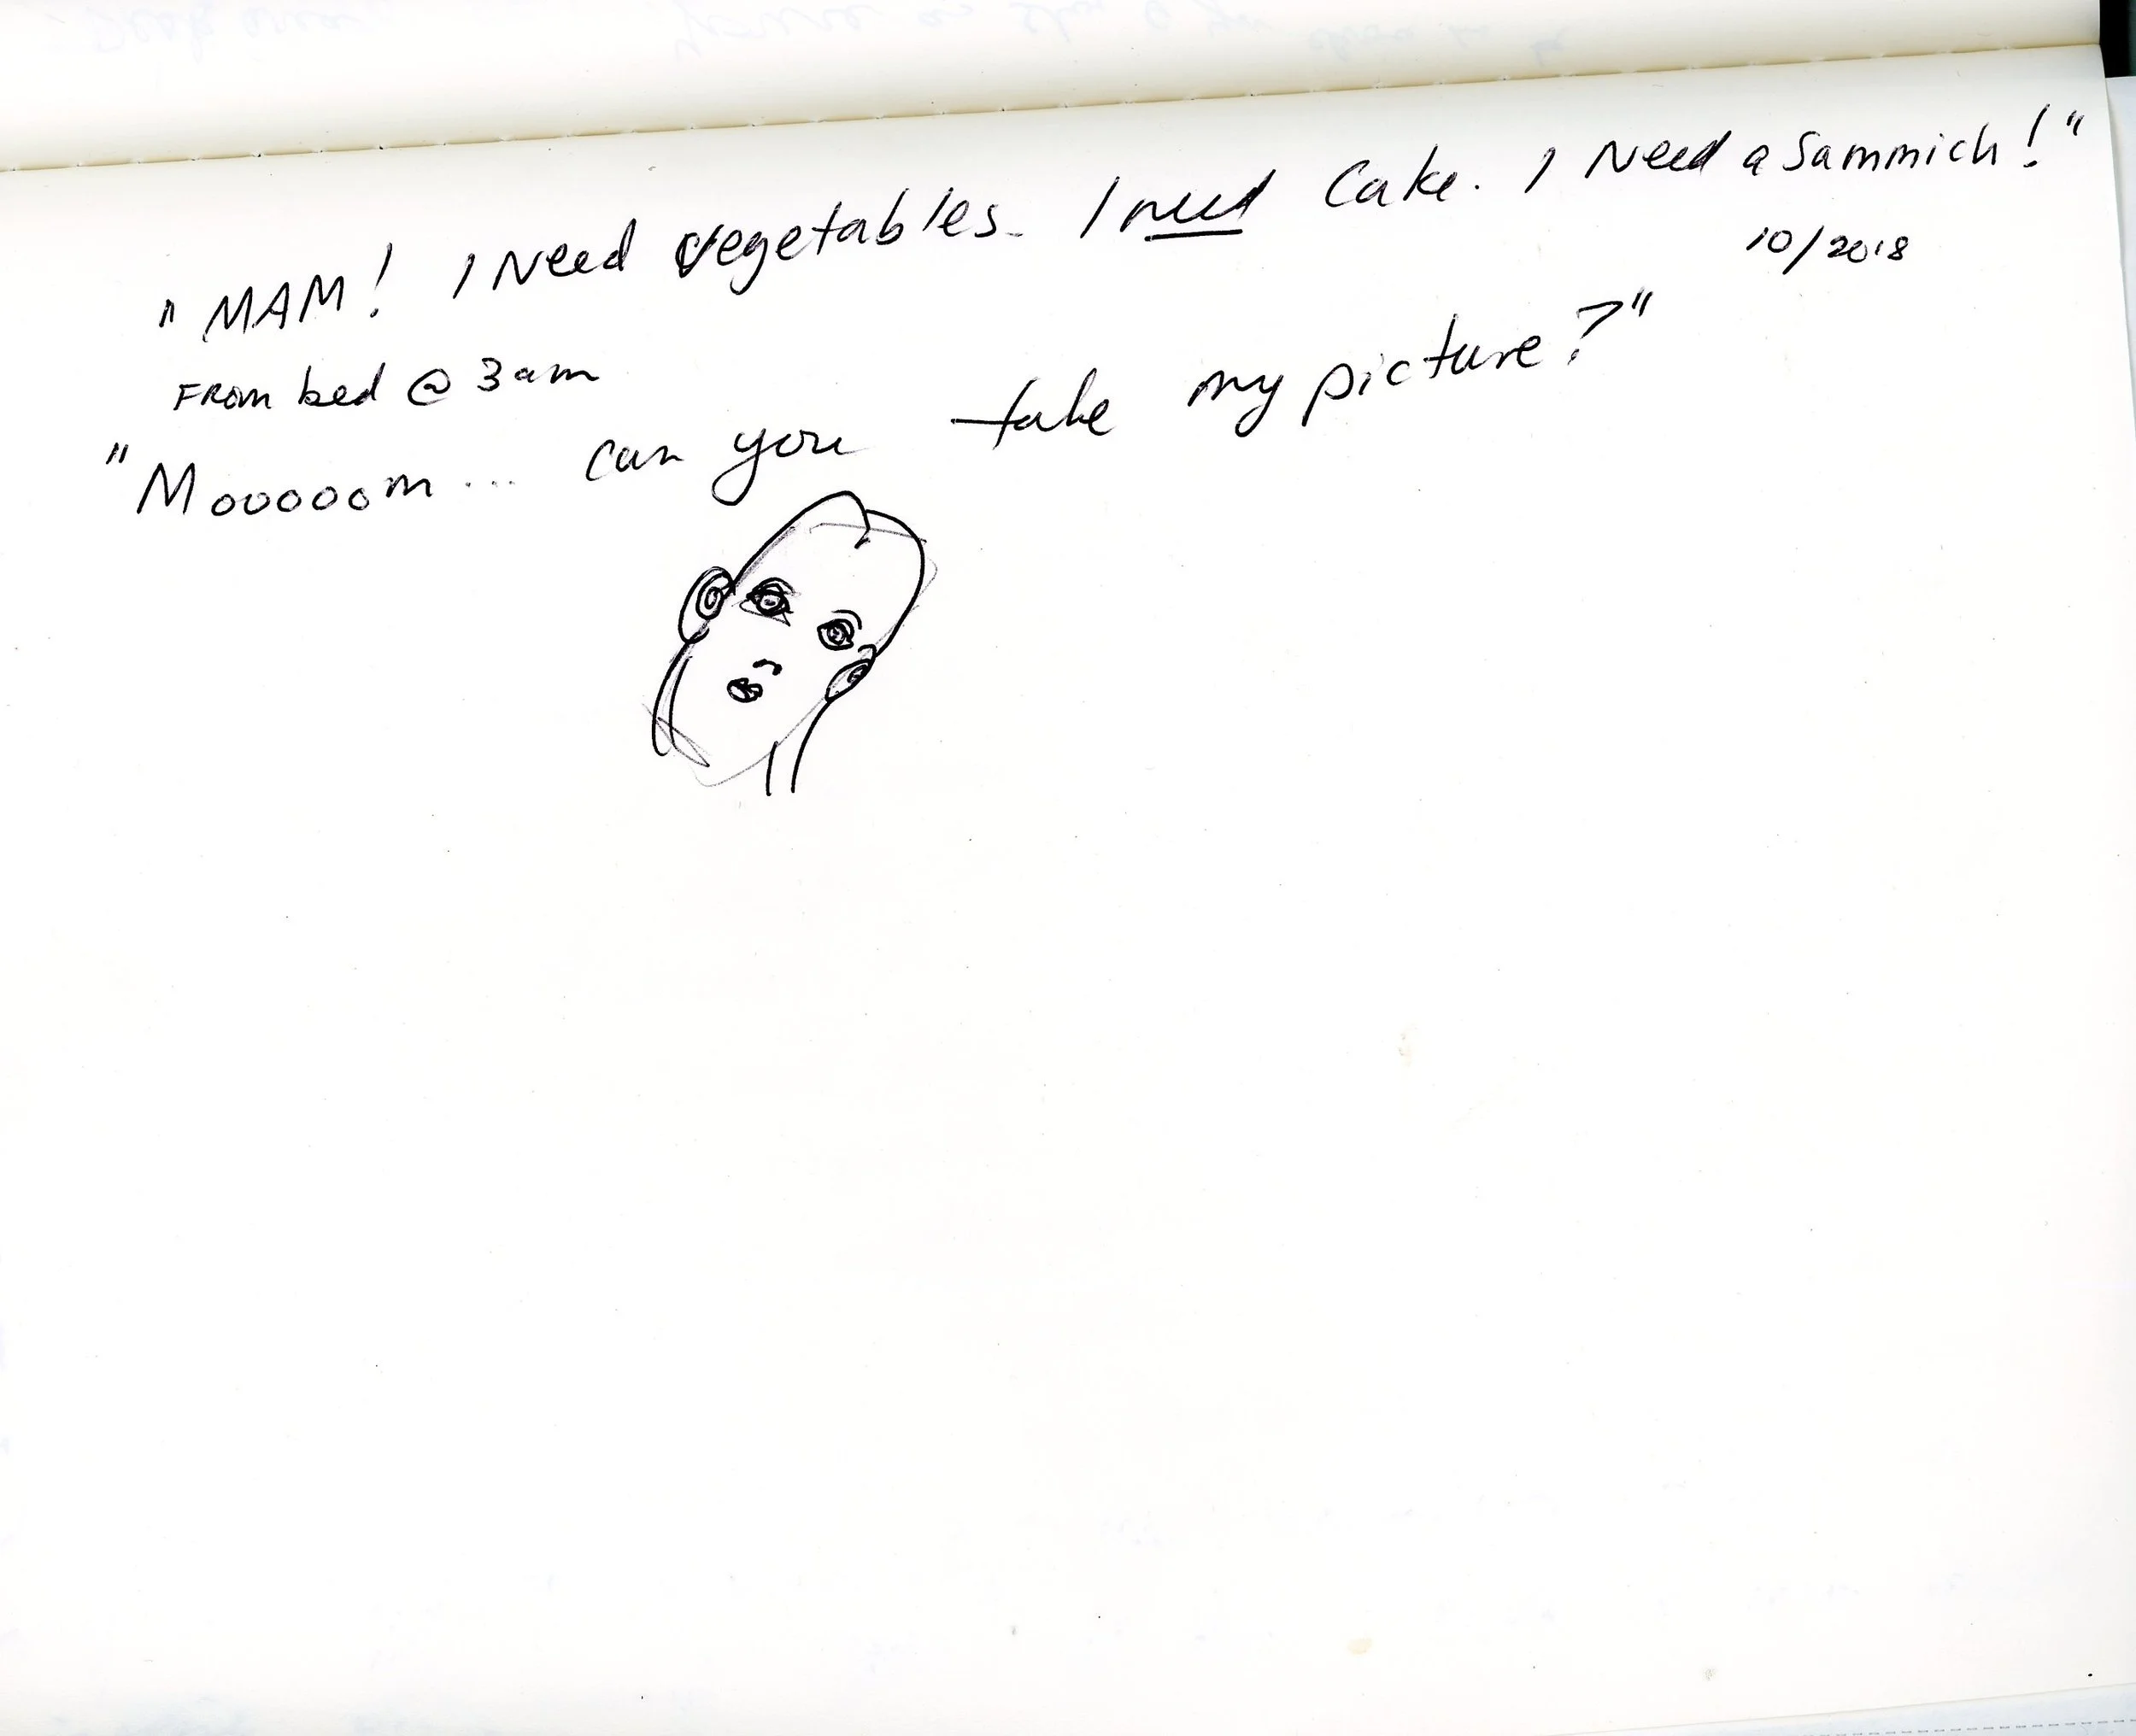 "MAM! I Need vegetables. I need Cake. I Need a Sammich!"
10/2018
From bed @ 3am
"Mooooom... can you take my picture?"